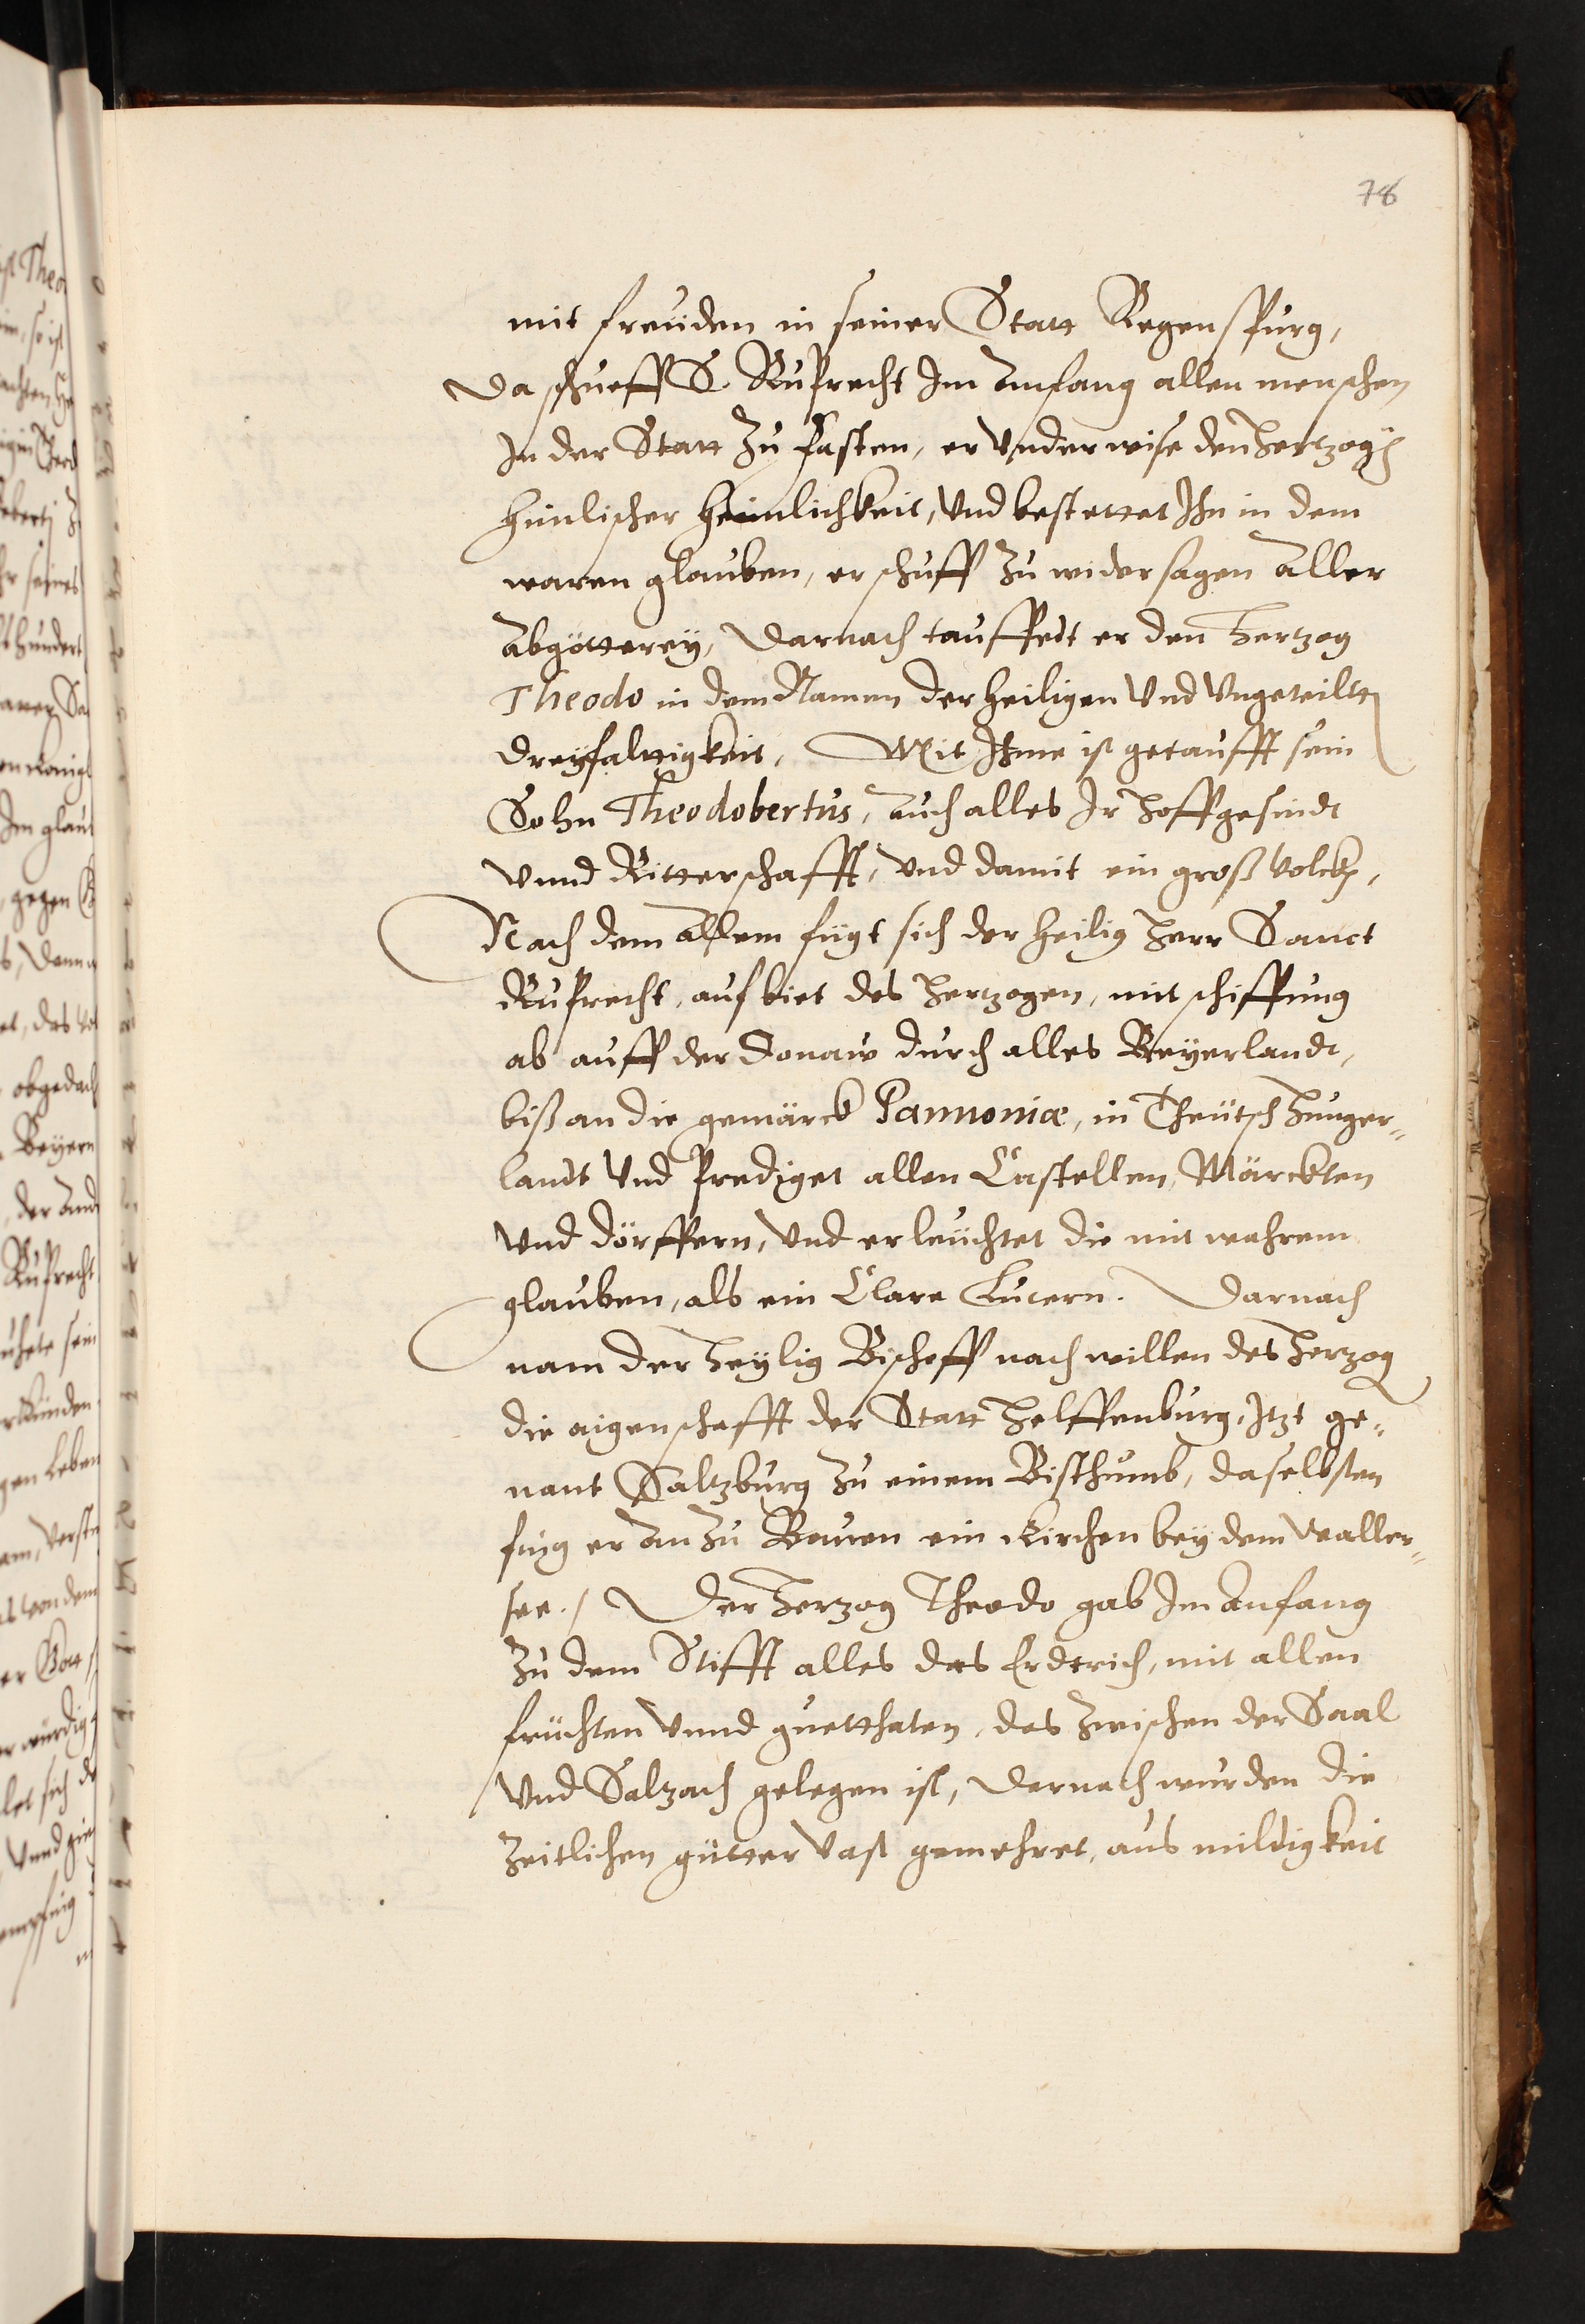 78
mit freüden in seiner Statt Regenspurg,
Da schueff S. Ruprecht Im Anfang allen menschen
In der Statt zu fasten, er vnderwise den Hertzogen
himlischer heimlichkeit, Vnd bestettet Ihn in dem
waren glauben, er schuff zu widersagen aller
Abgötterey, Darnach tauffedt er den Hertzog
Theodo in dem Namen der heiligen Vnd Vngeteilten
dreyfaltigkeit, Mit Ihme ist getaufft sein
Sohn Theodobertus, auch alles Ir hoffgesindt
vnnd Ritterschafft, vnd damit ein groß volckh,
Nach dem allem fügt sich der heilig Herr Sanct
Ruprecht, auf biet des Hertzogen, mit schiffung
ab auff der Donaw durch alles Beyerlandt,
biß an die gemärck Pannoniæ, in Theütsch Hunger=
landt Vnd Prediget allen Castellen, Märckten
Vnd dörffern, Vnd erleüchtet die mit wahrem
glauben, als ein Clare Lucern. Darnach
nam der Heylig Bischoff nach willen des Herzog
die aigenschafft der Statt Helffenburg, Itzt ge=
nant Saltzburg zu einem Bisthumb, daselbsten
fing er an zu Bauen ein Kirchen bey dem Waller=
see./ Der Herzog Theodo gab Im Anfang
zu dem Stifft alles das Erdtrich, mit allen
früchten Vnnd guetthaten, das zwischen der Saal
Vnd Salzach gelegen ist, Darnach wurden die
zeitlichen gütter Vast gemehret, aus mildigkeit